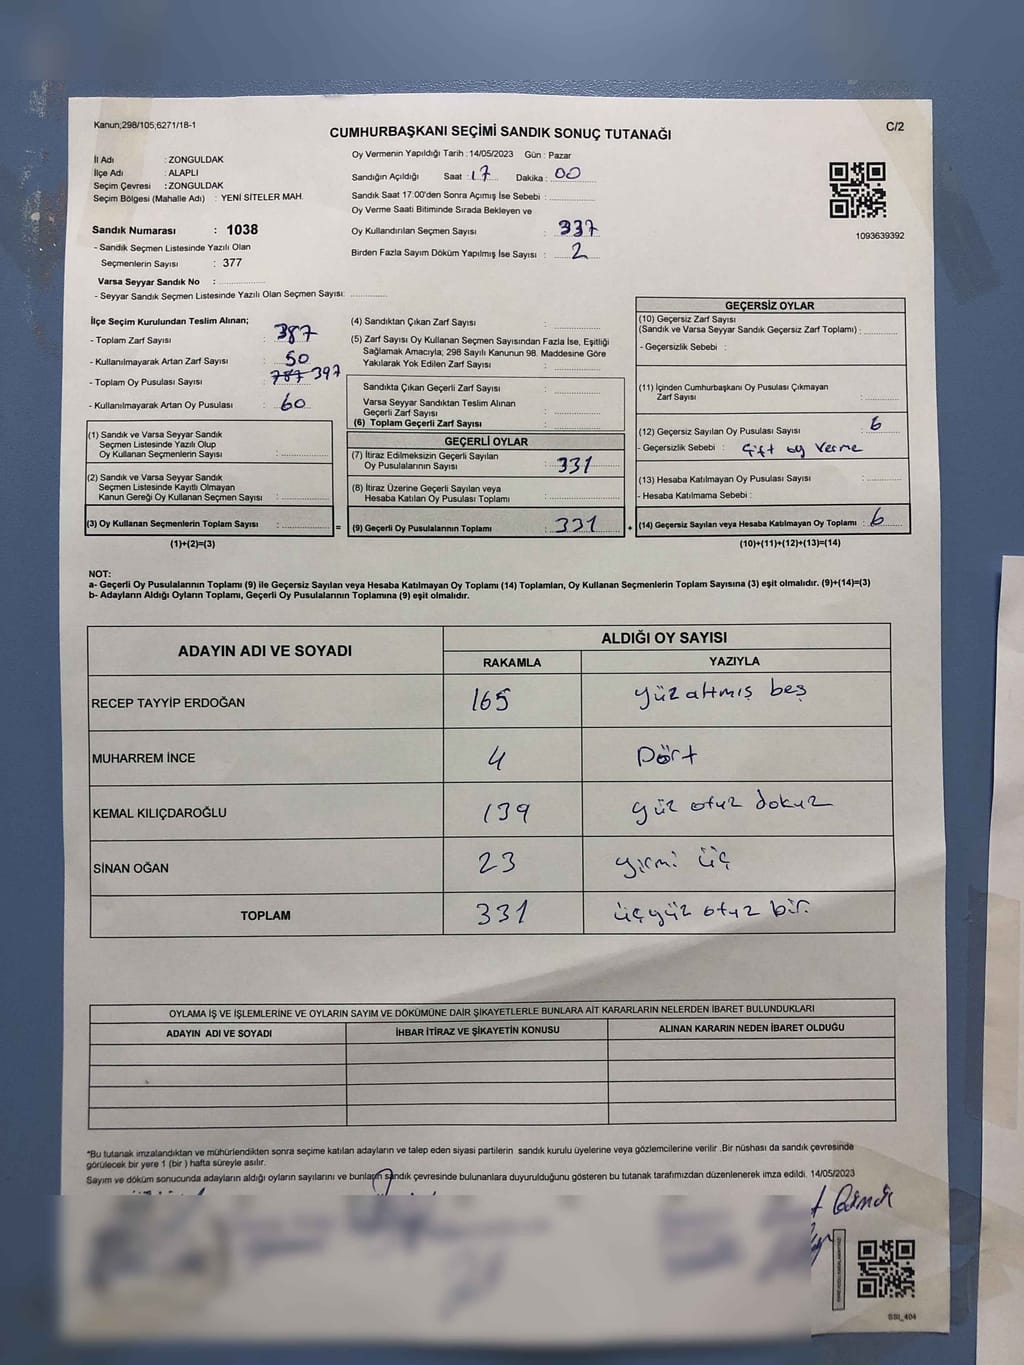 Kanun;298/105,6271/18-1
C/2
CUMHURBAŞKANI SEÇİMİ SANDIK SONUÇ TUTANAĞI
İl Adı : ZONGULDAK
İlçe Adı : ALAPLI
Seçim Çevresi : ZONGULDAK
Seçim Bölgesi (Mahalle Adı) : YENİ SİTELER MAH.
Oy Vermenin Yapıldığı Tarih : 14/05/2023 Gün : Pazar
Sandığın Açıldığı Saat : 17 Dakika : 00
Sandık Saat 17.00'den Sonra Açımış İse Sebebi :
Oy Verme Saati Bitiminde Sırada Bekleyen ve
Oy Kullandırılan Seçmen Sayısı : 337
Birden Fazla Sayım Döküm Yapılmış İse Sayısı : 2
1093639392
Sandık Numarası : 1038
- Sandık Seçmen Listesinde Yazılı Olan
Seçmenlerin Sayısı : 377
Varsa Seyyar Sandık No :
- Seyyar Sandık Seçmen Listesinde Yazılı Olan Seçmen Sayısı:
İlçe Seçim Kurulundan Teslim Alınan;
- Toplam Zarf Sayısı : 387
- Kullanılmayarak Artan Zarf Sayısı : 50
- Toplam Oy Pusulası Sayısı : 787 397
- Kullanılmayarak Artan Oy Pusulası : 60
(1) Sandık ve Varsa Seyyar Sandık
Seçmen Listesinde Yazılı Olup
Oy Kullanan Seçmenlerin Sayısı :
(2) Sandık ve Varsa Seyyar Sandık
Seçmen Listesinde Kayıtlı Olmayan
Kanun Gereği Oy Kullanan Seçmen Sayısı :
(3) Oy Kullanan Seçmenlerin Toplam Sayısı : =
(1)+(2)=(3)
(4) Sandıktan Çıkan Zarf Sayısı :
(5) Zarf Sayısı Oy Kullanan Seçmen Sayısından Fazla İse, Eşitliği
Sağlamak Amacıyla; 298 Sayılı Kanunun 98. Maddesine Göre
Yakılarak Yok Edilen Zarf Sayısı :
Sandıkta Çıkan Geçerli Zarf Sayısı :
Varsa Seyyar Sandıktan Teslim Alınan
Geçerli Zarf Sayısı :
(6) Toplam Geçerli Zarf Sayısı :
GEÇERLİ OYLAR
(7) İtiraz Edilmeksizin Geçerli Sayılan
Oy Pusulalarının Sayısı : 331
(8) İtiraz Üzerine Geçerli Sayılan veya
Hesaba Katılan Oy Pusulası Toplamı :
(9) Geçerli Oy Pusulalarının Toplamı : 331 +
GEÇERSİZ OYLAR
(10) Geçersiz Zarf Sayısı
(Sandık ve Varsa Seyyar Sandık Geçersiz Zarf Toplamı) :
- Geçersizlik Sebebi :
(11) İçinden Cumhurbaşkanı Oy Pusulası Çıkmayan
Zarf Sayısı :
(12) Geçersiz Sayılan Oy Pusulası Sayısı : 6
- Geçersizlik Sebebi : Çift oy verme
(13) Hesaba Katılmayan Oy Pusulası Sayısı :
- Hesaba Katılmama Sebebi :
(14) Geçersiz Sayılan veya Hesaba Katılmayan Oy Toplamı : 6
(10)+(11)+(12)+(13)=(14)
NOT:
a- Geçerli Oy Pusulalarının Toplamı (9) ile Geçersiz Sayılan veya Hesaba Katılmayan Oy Toplamı (14) Toplamları, Oy Kullanan Seçmenlerin Toplam Sayısına (3) eşit olmalıdır. (9)+(14)=(3)
b- Adayların Aldığı Oyların Toplamı, Geçerli Oy Pusulalarının Toplamına (9) eşit olmalıdır.
ADAYIN ADI VE SOYADI
ALDIĞI OY SAYISI
RAKAMLA YAZIYLA
RECEP TAYYİP ERDOĞAN 165 yüzaltmış beş
MUHARREM İNCE 4 Dört
KEMAL KILIÇDAROĞLU 139 yüz otuz dokuz
SİNAN OĞAN 23 yirmi üç
TOPLAM 331 üçyüz otuz bir
OYLAMA İŞ VE İŞLEMLERİNE VE OYLARIN SAYIM VE DÖKÜMÜNE DAİR ŞİKAYETLERLE BUNLARA AİT KARARLARIN NELERDEN İBARET BULUNDUKLARI
ADAYIN ADI VE SOYADI İHBAR İTİRAZ VE ŞİKAYETİN KONUSU ALINAN KARARIN NEDEN İBARET OLDUĞU
*Bu tutanak imzalandıktan ve mühürlendikten sonra seçime katılan adayların ve talep eden siyasi partilerin sandık kurulu üyelerine veya gözlemcilerine verilir .Bir nüshası da sandık çevresinde
görülecek bir yere 1 (bir ) hafta süreyle asılır.
Sayım ve döküm sonucunda adayların aldığı oyların sayılarını ve bunların sandık çevresinde bulunanlara duyurulduğunu gösteren bu tutanak tarafımızdan düzenlenerek imza edildi. 14/05/2023
SSI_404